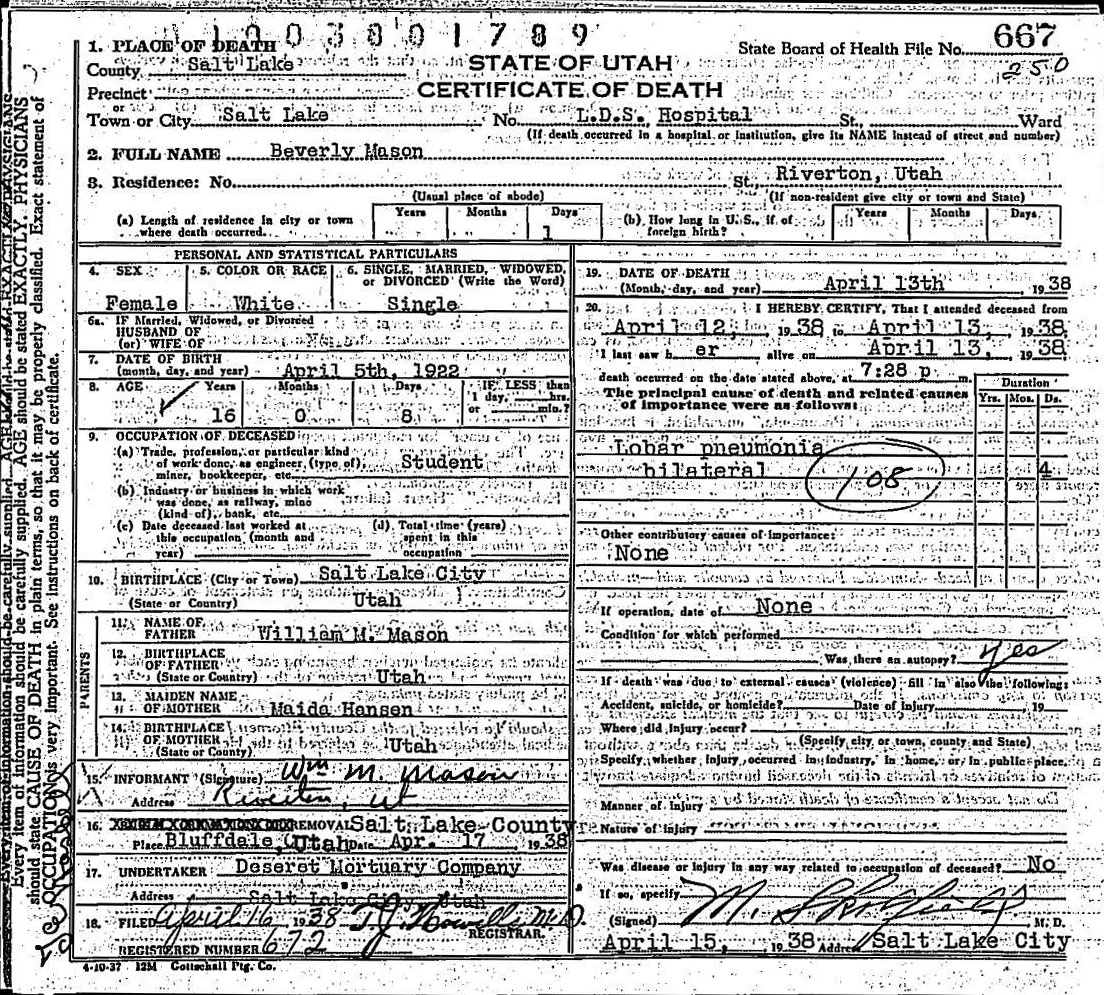 1003801789
1. PLACE OF DEATH
State Board of Health File No. 667
County Salt Lake
STATE OF UTAH
250
Precinct
CERTIFICATE OF DEATH
or
Town or City Salt Lake No. L.D.S. Hospital St., Ward
(If death occurred in a hospital or institution, give its NAME instead of street and number)
2. FULL NAME Beverly Mason
3. Residence: No. St. Riverton, Utah
(Usual place of abode) (If non-resident give city or town and State)
(a) Length of residence in city or town where death occurred. Years Months Days 1
(b) How long in U. S., if of foreign birth? Years Months Days
PERSONAL AND STATISTICAL PARTICULARS
4. SEX 5. COLOR OR RACE 6. SINGLE, MARRIED, WIDOWED,
or DIVORCED (Write the Word)
Female White Single
6a. IF Married, Widowed, or Divorced
HUSBAND OF
(or) WIFE OF
7. DATE OF BIRTH
(month, day, and year) April 5th, 1922
8. AGE Years Months Days IF LESS than
1 day, hrs.
or min.?
16 0 8
9. OCCUPATION OF DECEASED
(a) Trade, profession, or particular kind
of work done, as engineer, (type of), Student
miner, bookkeeper, etc.
(b) Industry or business in which work
was done, as railway, mine
(kind of), bank, etc.
(c) Date deceased last worked at
this occupation (month and
year)
(d) Total time (years)
spent in this
occupation
10. BIRTHPLACE (City or Town) Salt Lake City
(State or Country) Utah
PARENTS
11. NAME OF
FATHER William M. Mason
12. BIRTHPLACE
OF FATHER
(State or Country) Utah
13. MAIDEN NAME
OF MOTHER Maida Hansen
14. BIRTHPLACE
OF MOTHER Utah
(State or County)
15. INFORMANT (Signature) Wm M. Mason
Address Riverton, Ut
16. REMOVAL Salt Lake County
Place Bluffdale, Utah Date Apr. 17 1938
17. UNDERTAKER Deseret Mortuary Company
Address Salt Lake City, Utah
18. FILED April 16 1938 T.J. Howells M.D.
REGISTRAR.
REGISTERED NUMBER 672
4-10-37 12M Gottschall Ptg. Co.
19. DATE OF DEATH
(Month, day, and year) April 13th 1938
20. I HEREBY CERTIFY, That I attended deceased from
April 12, 1938 to April 13, 1938
I last saw her alive on April 13, 1938
death occurred on the date stated above, at 7:28 p m.
The principal cause of death and related causes
of importance were as follows:
Duration
Yrs. Mos. Ds.
Lobar pneumonia
bilateral 108 4
Other contributory causes of importance:
None
If operation, date of None
Condition for which performed
Was there an autopsy? yes
If death was due to external causes (violence) fill in also the following:
Accident, suicide, or homicide? Date of injury 19
Where did injury occur?
(Specify city or town, county and State)
Specify whether injury occurred in industry, in home, or in public place.
Manner of injury
Nature of injury
Was disease or injury in any way related to occupation of deceased? No
If so, specify
(Signed) M. M. D.
April 15, 1938 Address Salt Lake City
Every item of information should be carefully supplied. AGE should be stated EXACTLY. PHYSICIANS
should state CAUSE OF DEATH in plain terms, so that it may be properly classified. Exact statement of
OCCUPATION is very important. See instructions on back of certificate.